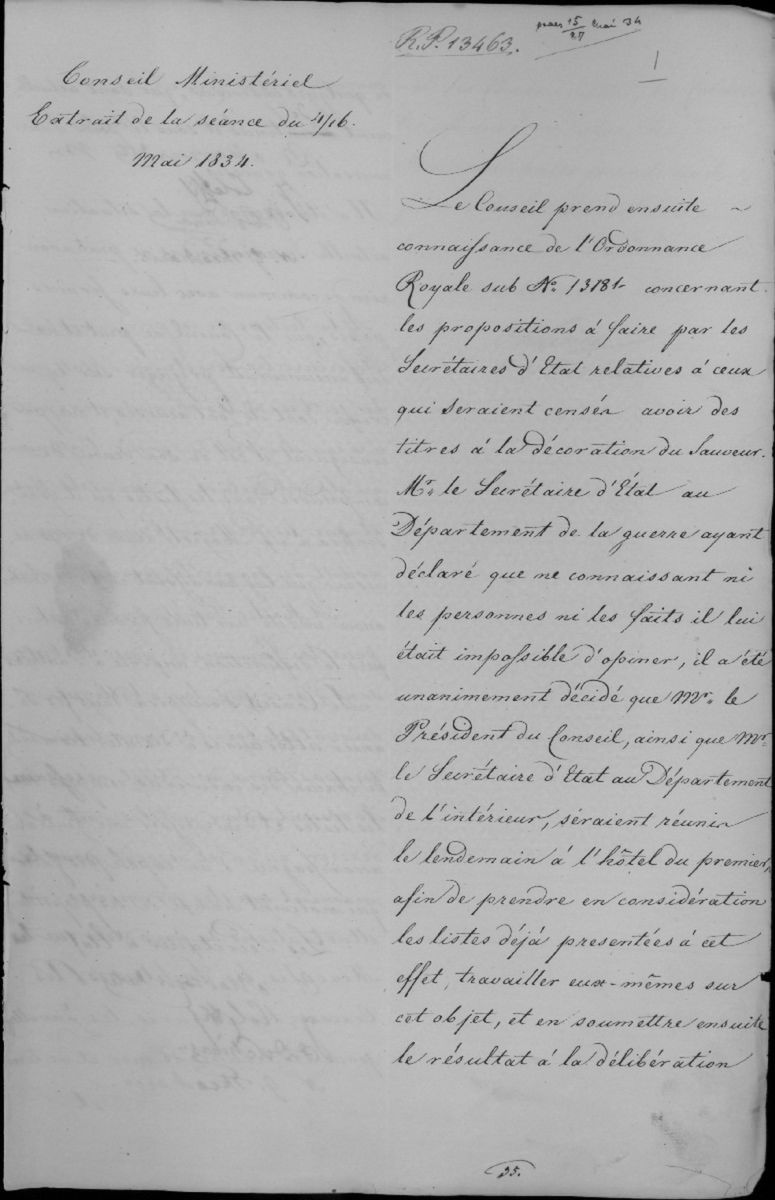 R.P. 13463.
praes 15/27 Mai 34
1
Conseil Ministériel
Extrait de la séance du 4/16.
Mai 1834.
Le Conseil prend ensuite
connaissance de l'Ordonnance
Royale sub No. 13181 concernant
les propositions à faire par les
Secrétaires d'Etat relatives à ceux
qui seraient censés avoir des
titres à la décoration du Sauveur.
Mr. le Secrétaire d'Etat au
Département de la guerre ayant
déclaré que ne connaissant ni
les personnes ni les faits il lui
était impossible d'opiner, il a été
unanimement décidé que Mr. le
Président du Conseil, ainsi que Mr.
le Secrétaire d'Etat au Département
de l'intérieur, séraient réunis
le lendemain à l'hôtel du premier,
afin de prendre en considération
les listes déjà presentées à cet
effet, travailler eux-mêmes sur
cet objet, et en soumettre ensuite
le résultat à la délibération
35.